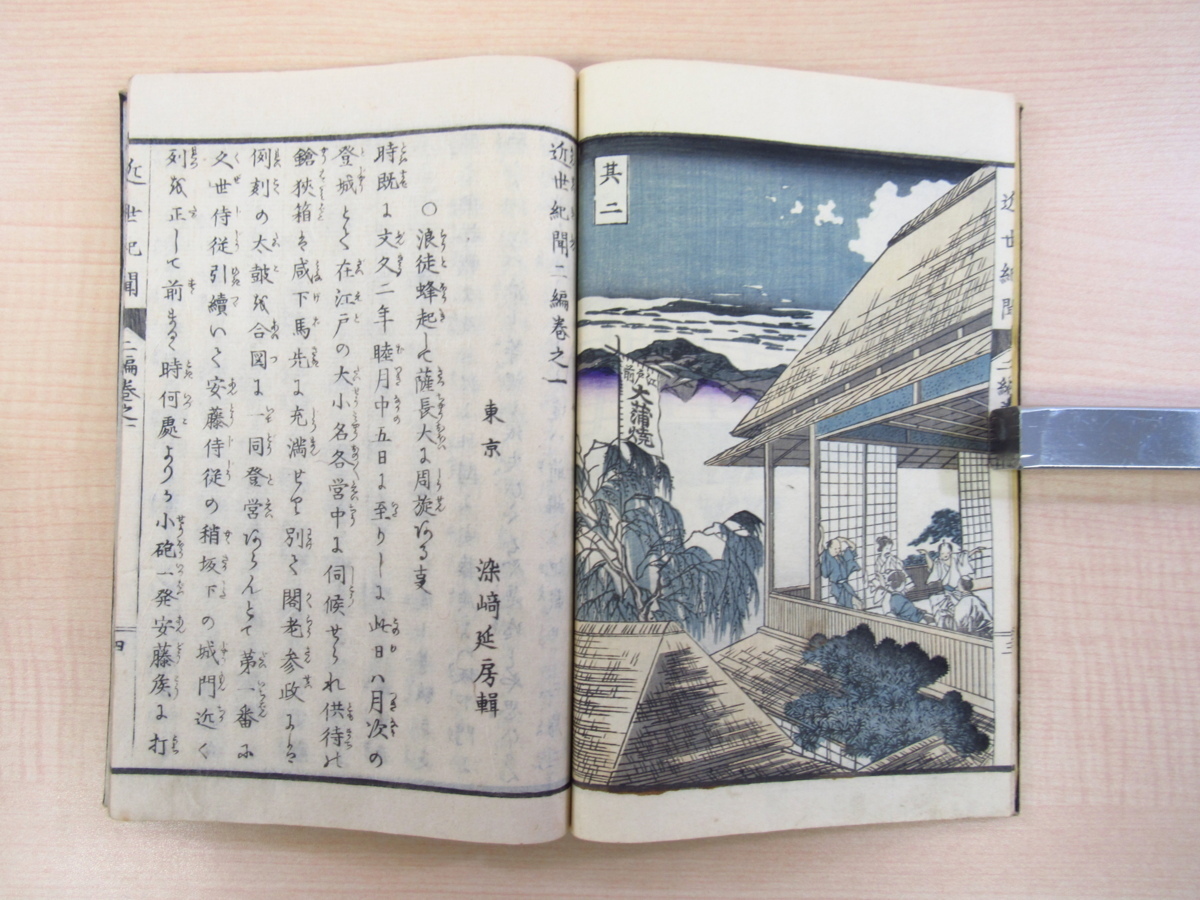 近世紀聞
二編
三
其二
江戸前
大蒲焼
近世紀聞二編巻之一
東京
染﨑延房輯
○浪徒蜂起して薩長大に周旋ある支
時既に文久二年睦月中五日に至りしに此日ハ月次の
登城とて在江戸の大小名各営中に伺候せられ供待の
鎗狭箱は咸下馬先に充満せり別て閣老参政にハ
例刻の太皷を合図に一同登営あらんとて第一番に
久世侍従引續いて安藤侍従の稍坂下の城門近く
列を正して前まるゝ時何處よりか小砲一発安藤矦に打
近世紀聞
二編巻之一
四